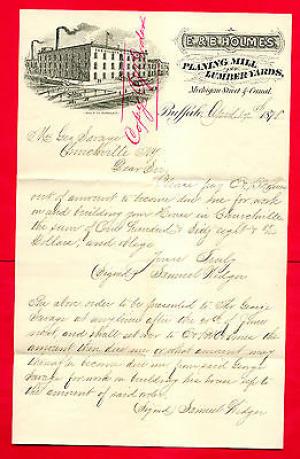 E. & B. HOLMES,
PLANING MILL
AND
LUMBER YARDS,
Michigan Street & Canal.
Buffalo, April 187
Mr Geo Savage
Churchville NY
Dear Sir
Please pay
out of amount to become due me for work
on building your House in Churchville
the sum of One Hundred & Sixty eight &
Dollars, and oblige
Yours Truly
Signed Samuel Widger
The above order to be presented to Mr George
Savage at any time after the of June
next, and shall the
amount then due me or what amount may
become due me from said George
Savage for work on building his house up to
the amount of said order.
Signed Samuel Widger